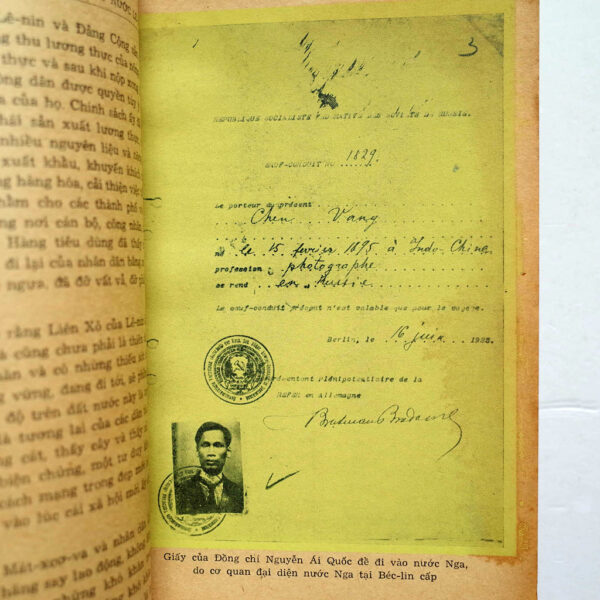 NƯỚC
Lê-nin và Đảng Cộng sản
thu lương thực của nông
thực và sau khi nộp xong
ông dân được quyền tùy ý
a của họ. Chính sách ấy đã
hái sản xuất lương thực,
nhiều nguyên liệu và
xuất khẩu, khuyến khích
ng hàng hóa, cải thiện việc
nhằm cho các thành phố
ng nơi cán bộ, công nhân,
Hàng tiêu dùng đã thấy
đi lại của nhân dân bằng
ngựa, đã đỡ vất vả, đỡ
rằng Liên Xô của Lê-nin
cũng chưa phải là thiên
hần và có những thiếu sót
vững, đang đi tới, sẽ
độ trên đất nước này là
là tương lai của các dân
ng cát, thấy cây và thấy
biện chứng, một tư duy
cách mạng trong đẹp mắt
vào lúc cái xã hội mới
Mát-xcơ-va và nhân dân
hăng say lao động, không
những khó khăn
3
REPUBLIQUE SOCIALISTE FEDERATIVE DES SOVIETS DE RUSSIE.
SAUF-CONDUIT NO 1829.
Le porteur du présent
Chen Vang
né le 15 fevrier 1895 à Indo Chine
profession photographe
se rend en Russie
Le sauf-conduit présent n'est valable que pour le voyage.
Berlin, le 16 juin 1923.
Représentant Plénipotentiaire de la
RSFSR en Allemagne
Giấy của Đồng chí Nguyễn Ái Quốc để đi vào nước Nga,
do cơ quan đại diện nước Nga tại Béc-lin cấp